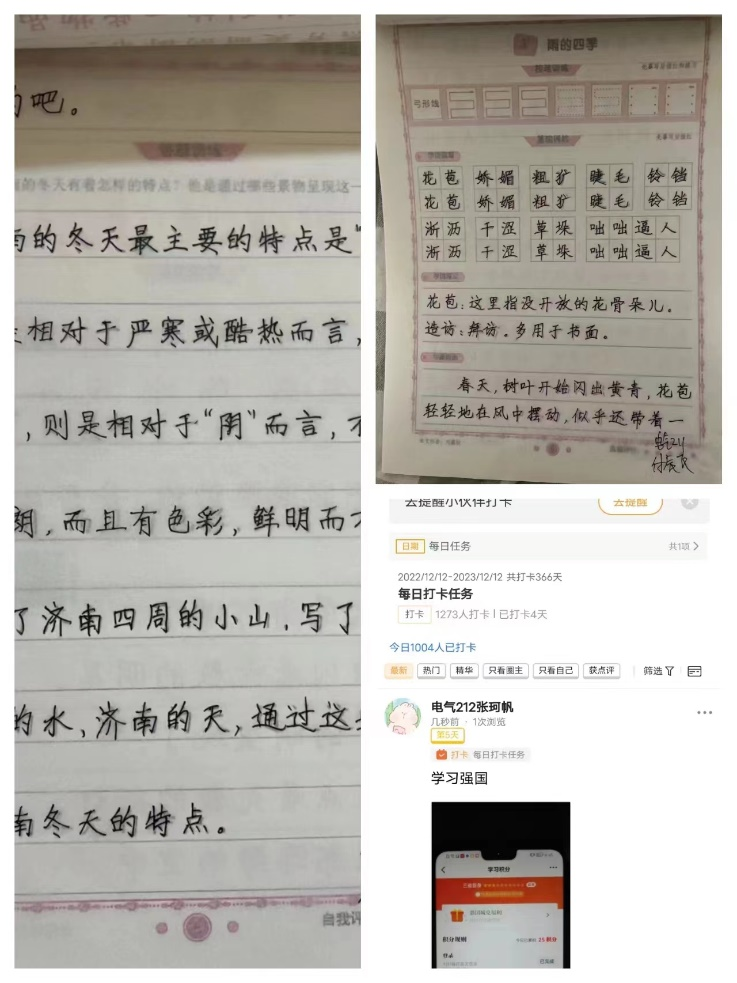 的吧。
的冬天有着怎样的特点？他是通过哪些景物呈现这一
南的冬天最主要的特点是“
相对于严寒或酷热而言，
，则是相对于“阴”而言，不
朗，而且有色彩，鲜明而不
了济南四周的小山，写了
的水，济南的天，通过这
南冬天的特点。
自我评
雨的四季
弓形线
花苞 娇媚 粗犷 睫毛 铃铛
花苞 娇媚 粗犷 睫毛 铃铛
淅沥 干涩 草垛 咄咄逼人
淅沥 干涩 草垛 咄咄逼人
花苞：这里指没开放的花骨朵儿。
造访：拜访。多用于书面。
春天，树叶开始闪出黄青，花苞
轻轻地在风中摆动，似乎还带着一
去提醒小伙伴打卡 去提醒
日期 每日任务 共1项
2022/12/12-2023/12/12 共打卡366天
每日打卡任务
打卡 1273人打卡 | 已打卡4天
今日1004人已打卡
最新 热门 精华 只看圈主 只看自己 获点评 筛选
电气212张珂帆
几秒前 · 1次浏览
第5天
打卡 每日打卡任务
学习强国
学习积分
积分规则 25积分
登录
已完成